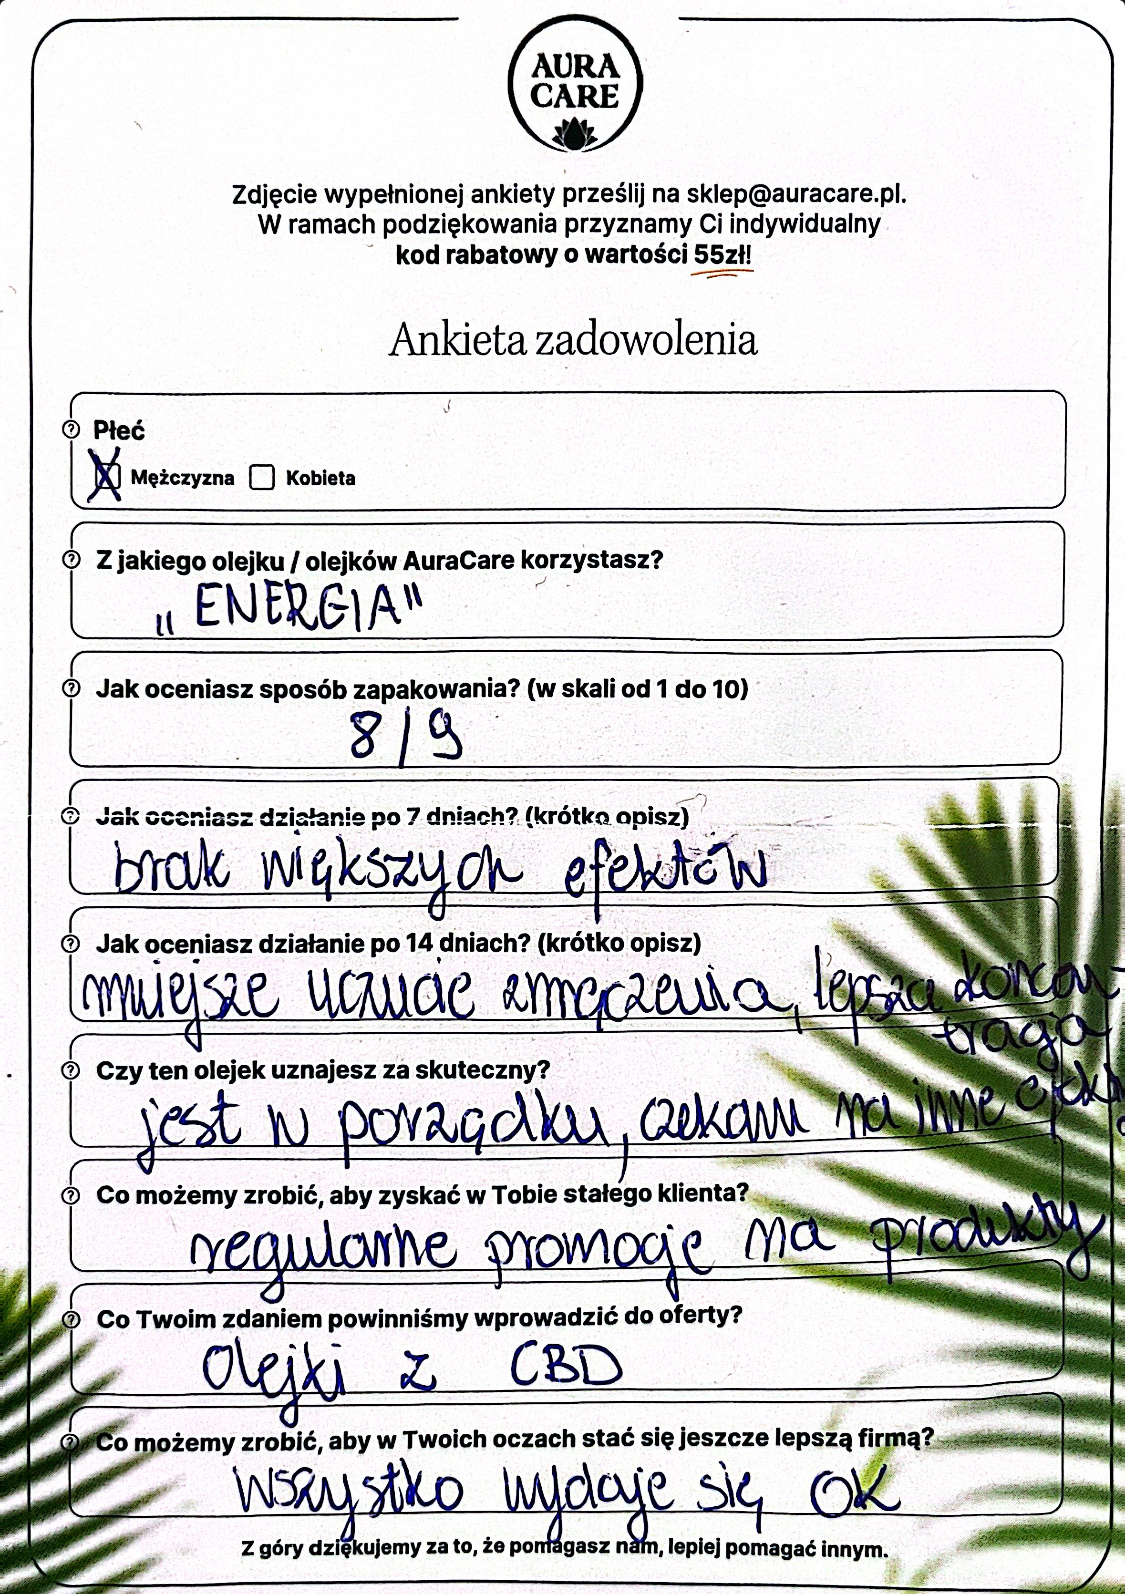 AURA
CARE
Zdjęcie wypełnionej ankiety prześlij na sklep@auracare.pl.
W ramach podziękowania przyznamy Ci indywidualny
kod rabatowy o wartości 55zł!
Ankieta zadowolenia
Płeć
X Mężczyzna Kobieta
Z jakiego olejku / olejków AuraCare korzystasz?
„ENERGIA"
Jak oceniasz sposób zapakowania? (w skali od 1 do 10)
8/9
Jak oceniasz działanie po 7 dniach? (krótko opisz)
brak większych efektów
Jak oceniasz działanie po 14 dniach? (krótko opisz)
mniejsze uczucie zmęczenia, lepsza koncen-
tracja
Czy ten olejek uznajesz za skuteczny?
jest w porządku, czekam na inne
Co możemy zrobić, aby zyskać w Tobie stałego klienta?
regularne promocje na produkty
Co Twoim zdaniem powinniśmy wprowadzić do oferty?
Olejki z CBD
Co możemy zrobić, aby w Twoich oczach stać się jeszcze lepszą firmą?
Wszystko wydaje się OK
Z góry dziękujemy za to, że pomagasz nam, lepiej pomagać innym.